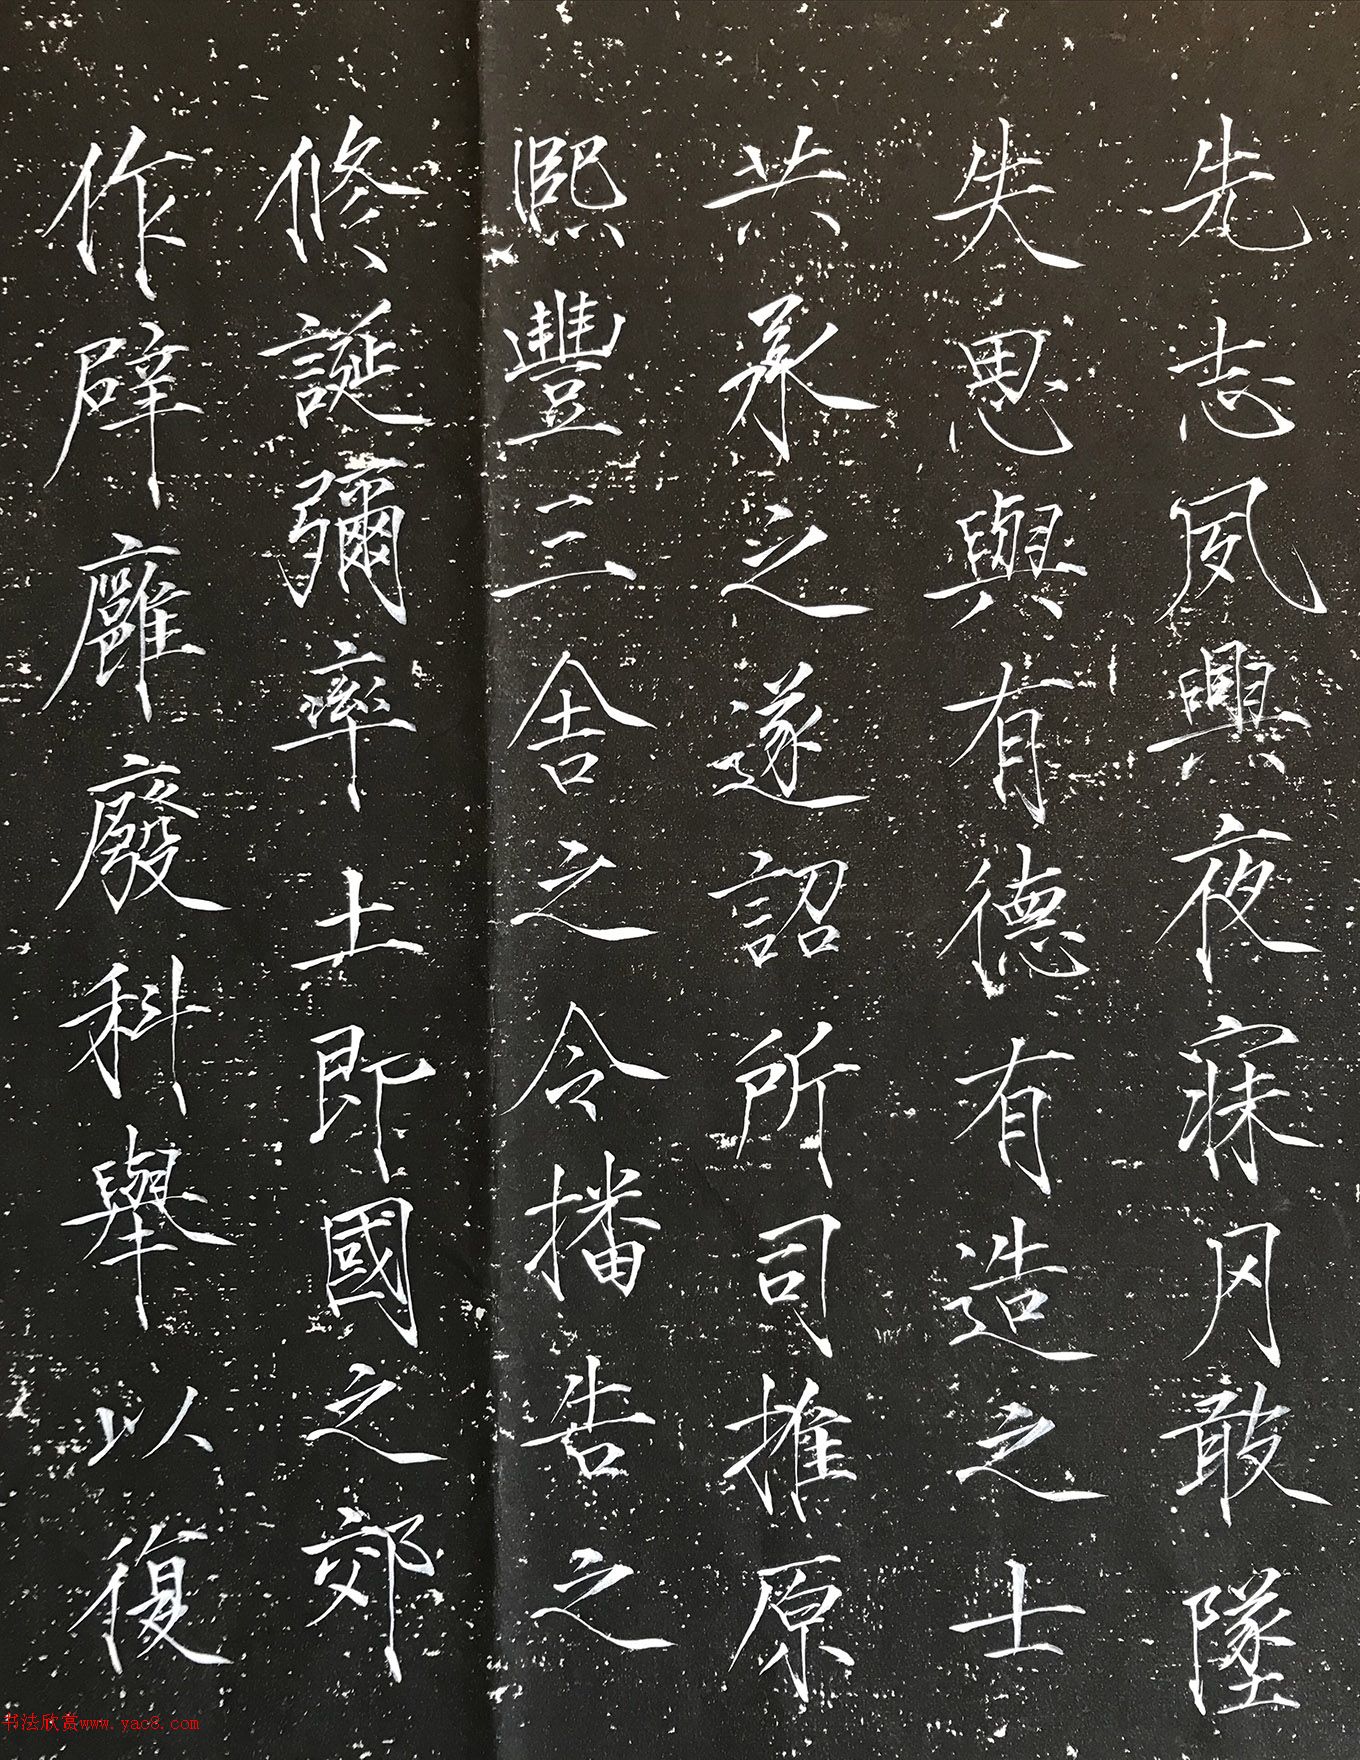 先志夙興夜寐罔敢墜
失思與有德有造之士
共承之遂詔所司推原
熙豐三舍之令播告之
修誕彌率土即國之郊
作辟廱廢科舉以復
书法欣赏www.yac8.com